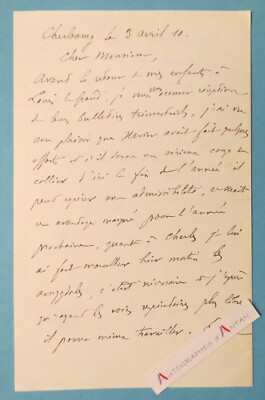 Cherbourg le 3 avril 10.
Cher Monsieur,
Avant le retour de mes enfants à
Louis le Grand, je vous accuser réception
de leurs bulletins trimestriels, j'ai vu
avec plaisir que avait fait quelques
efforts et s'il donne un coup de
collier d'ici la fin de l'année il
peut espérer une admissibilité, ce serait
un avantage marqué pour l'année
prochaine, quant à Charles je lui
ai fait hier matin les
amygdales, c'était nécessaire et j'espère
qu'ayant les voies respiratoires plus libres
il pourra mieux travailler.
AUTOGRAPHES D'ANTAN